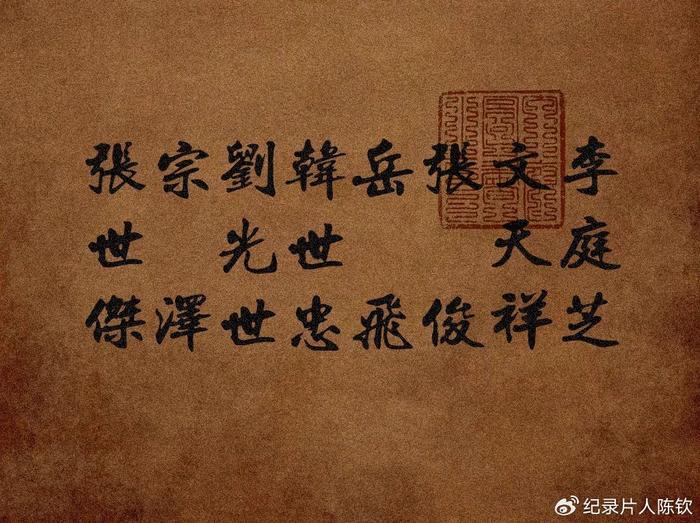 李庭芝
文天祥
張俊
岳飛
韓世忠
劉光世
宗澤
張世傑
纪录片人陈钦